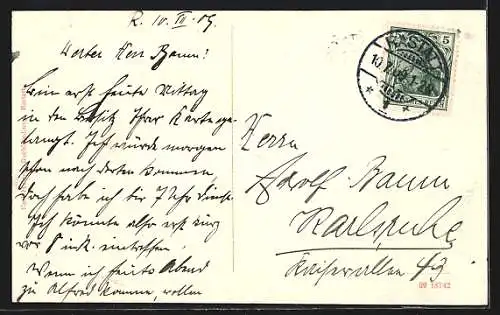 R. 10. III. 09.
Werter Herr Baum!
Bin erst heute Mittag
in den Besitz Ihrer Karte ge-
langt. Ich würde morgen
schon nach dorten kommen,
doch habe ich bis 7 Uhr Dienst.
Ich könnte also erst kurz
vor 8 Uhr eintreffen.
Wenn ich heute Abend
zu Alfred komme, wollen
Herrn
Adolf Baum
Karlsruhe
Kaiserallee 43
RASTATT
5
09 18742